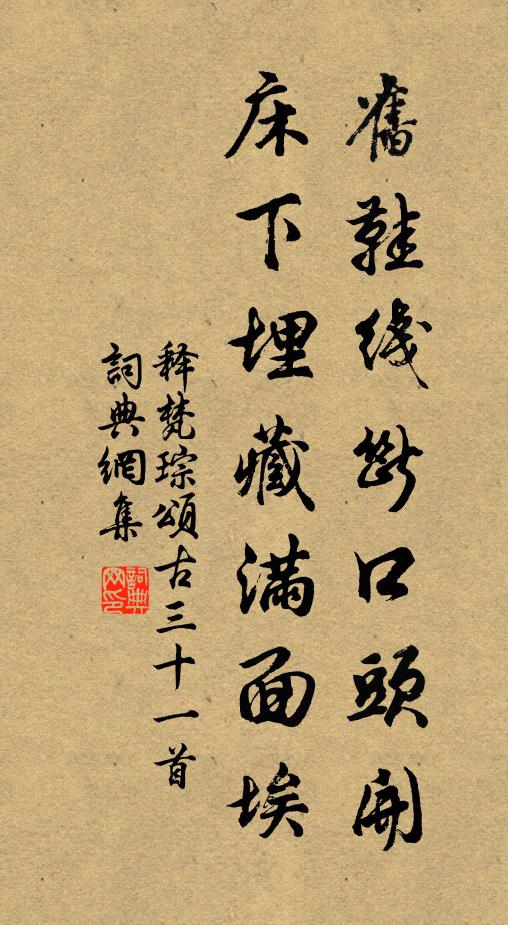 舊鞋綫斷口頭開
床下埋藏滿面埃
释梵琮頌古三十一首
詞典網集
詞典网印